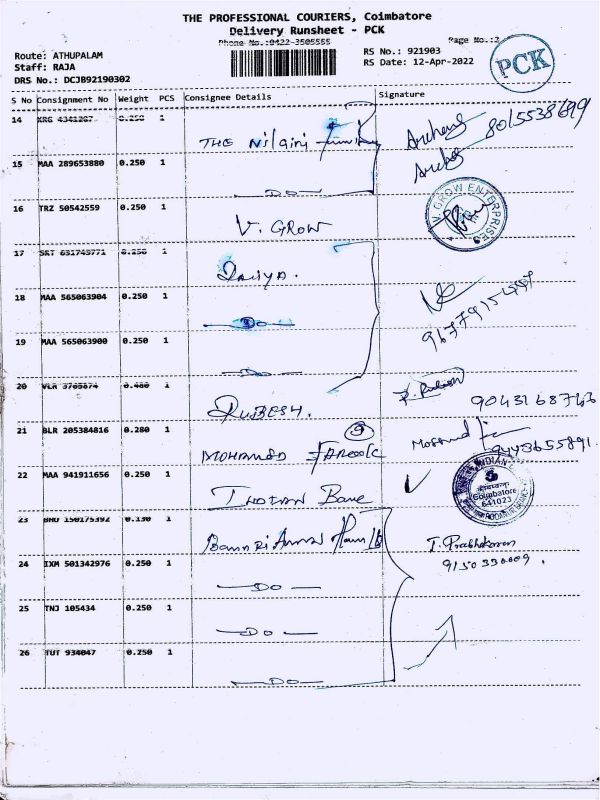 THE PROFESSIONAL COURIERS, Coimbatore
Delivery Runsheet - PCK
Phone No.:0422-3505555
Page No.:2
Route: ATHUPALAM
RS No.: 921903
Staff: RAJA
RS Date: 12-Apr-2022
DRS No.: DCJB92190302
PCK
S No Consignment No Weight PCS Consignee Details Signature
14 KRG 4341287 0.250 1
THE Nilgiri
8015538699
15 MAA 289653880 0.250 1
DO
16 TRZ 50542559 0.250 1
V. GROW
V. GROW ENTERPRISES
17 SRT 631743771 0.250 1
18 MAA 565063904 0.250 1
DO
19 MAA 565063900 0.250 1
DO
20 VLR 3765874 0.480 1
RUBESH.
9043168743
21 BLR 205384816 0.280 1
MOHAMED FAROOK
9443655891.
22 MAA 941911656 0.250 1
INDIAN Bank
INDIAN
Coimbatore
641023
23 BHU 150175392 0.130 1
T. Prabhakaran
24 IXM 501342976 0.250 1
DO
25 TNJ 105434 0.250 1
DO
26 TUT 934047 0.250 1
DO